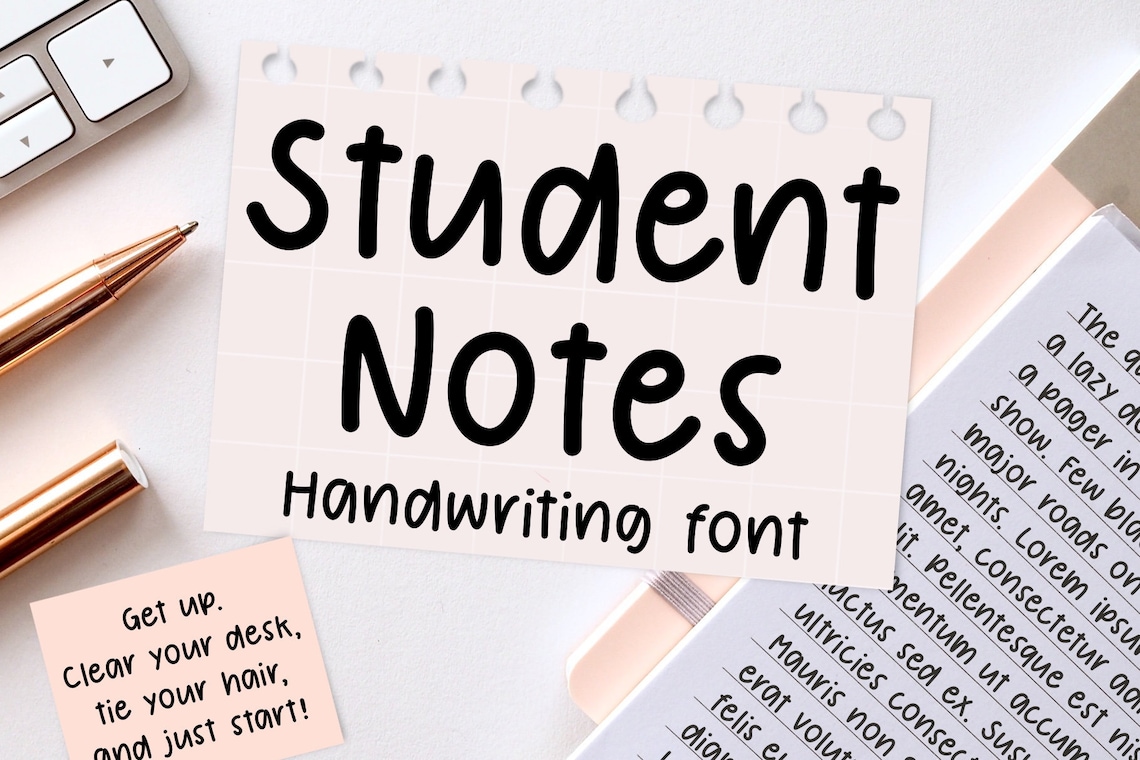 Student
Notes
Handwriting font
Get up.
Clear your desk,
tie your hair,
and just start!
The
a lazy
a pager in
show. Few
major roads on
nights. Lorem ipsum
amet, consectetur
pellentesque est
ut accum
luctus sed ex.
ultricies
Mauris non
erat
felis